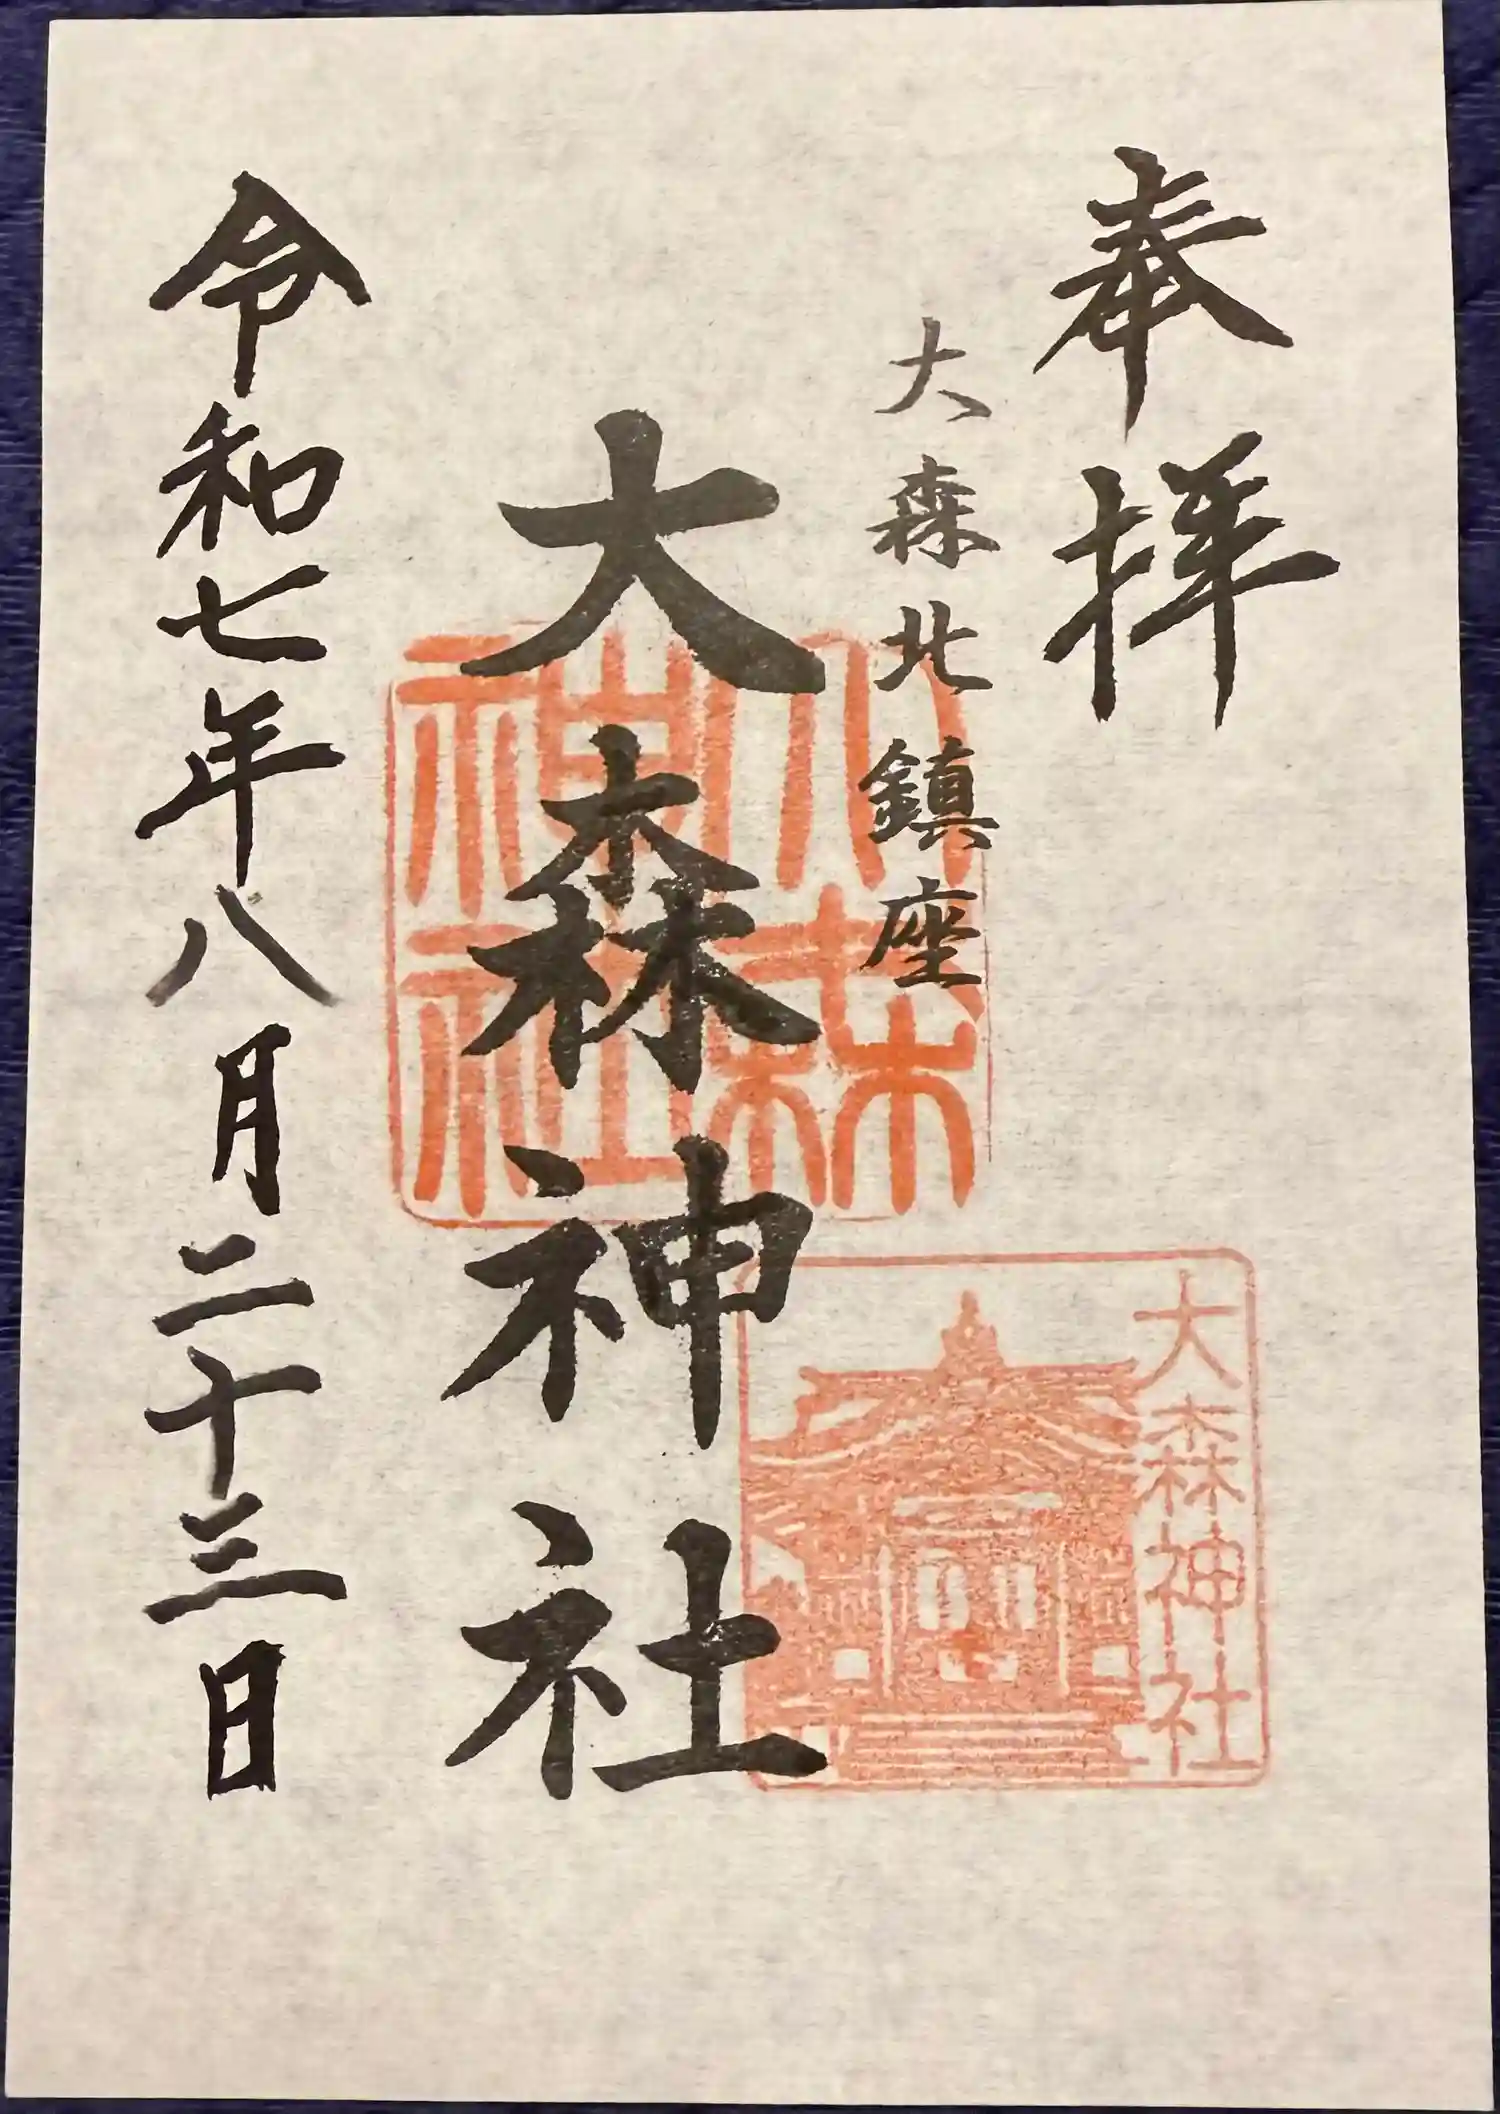 奉拝
大森北鎮座
大森神社
大森神社
大森神社
令和七年八月二十三日